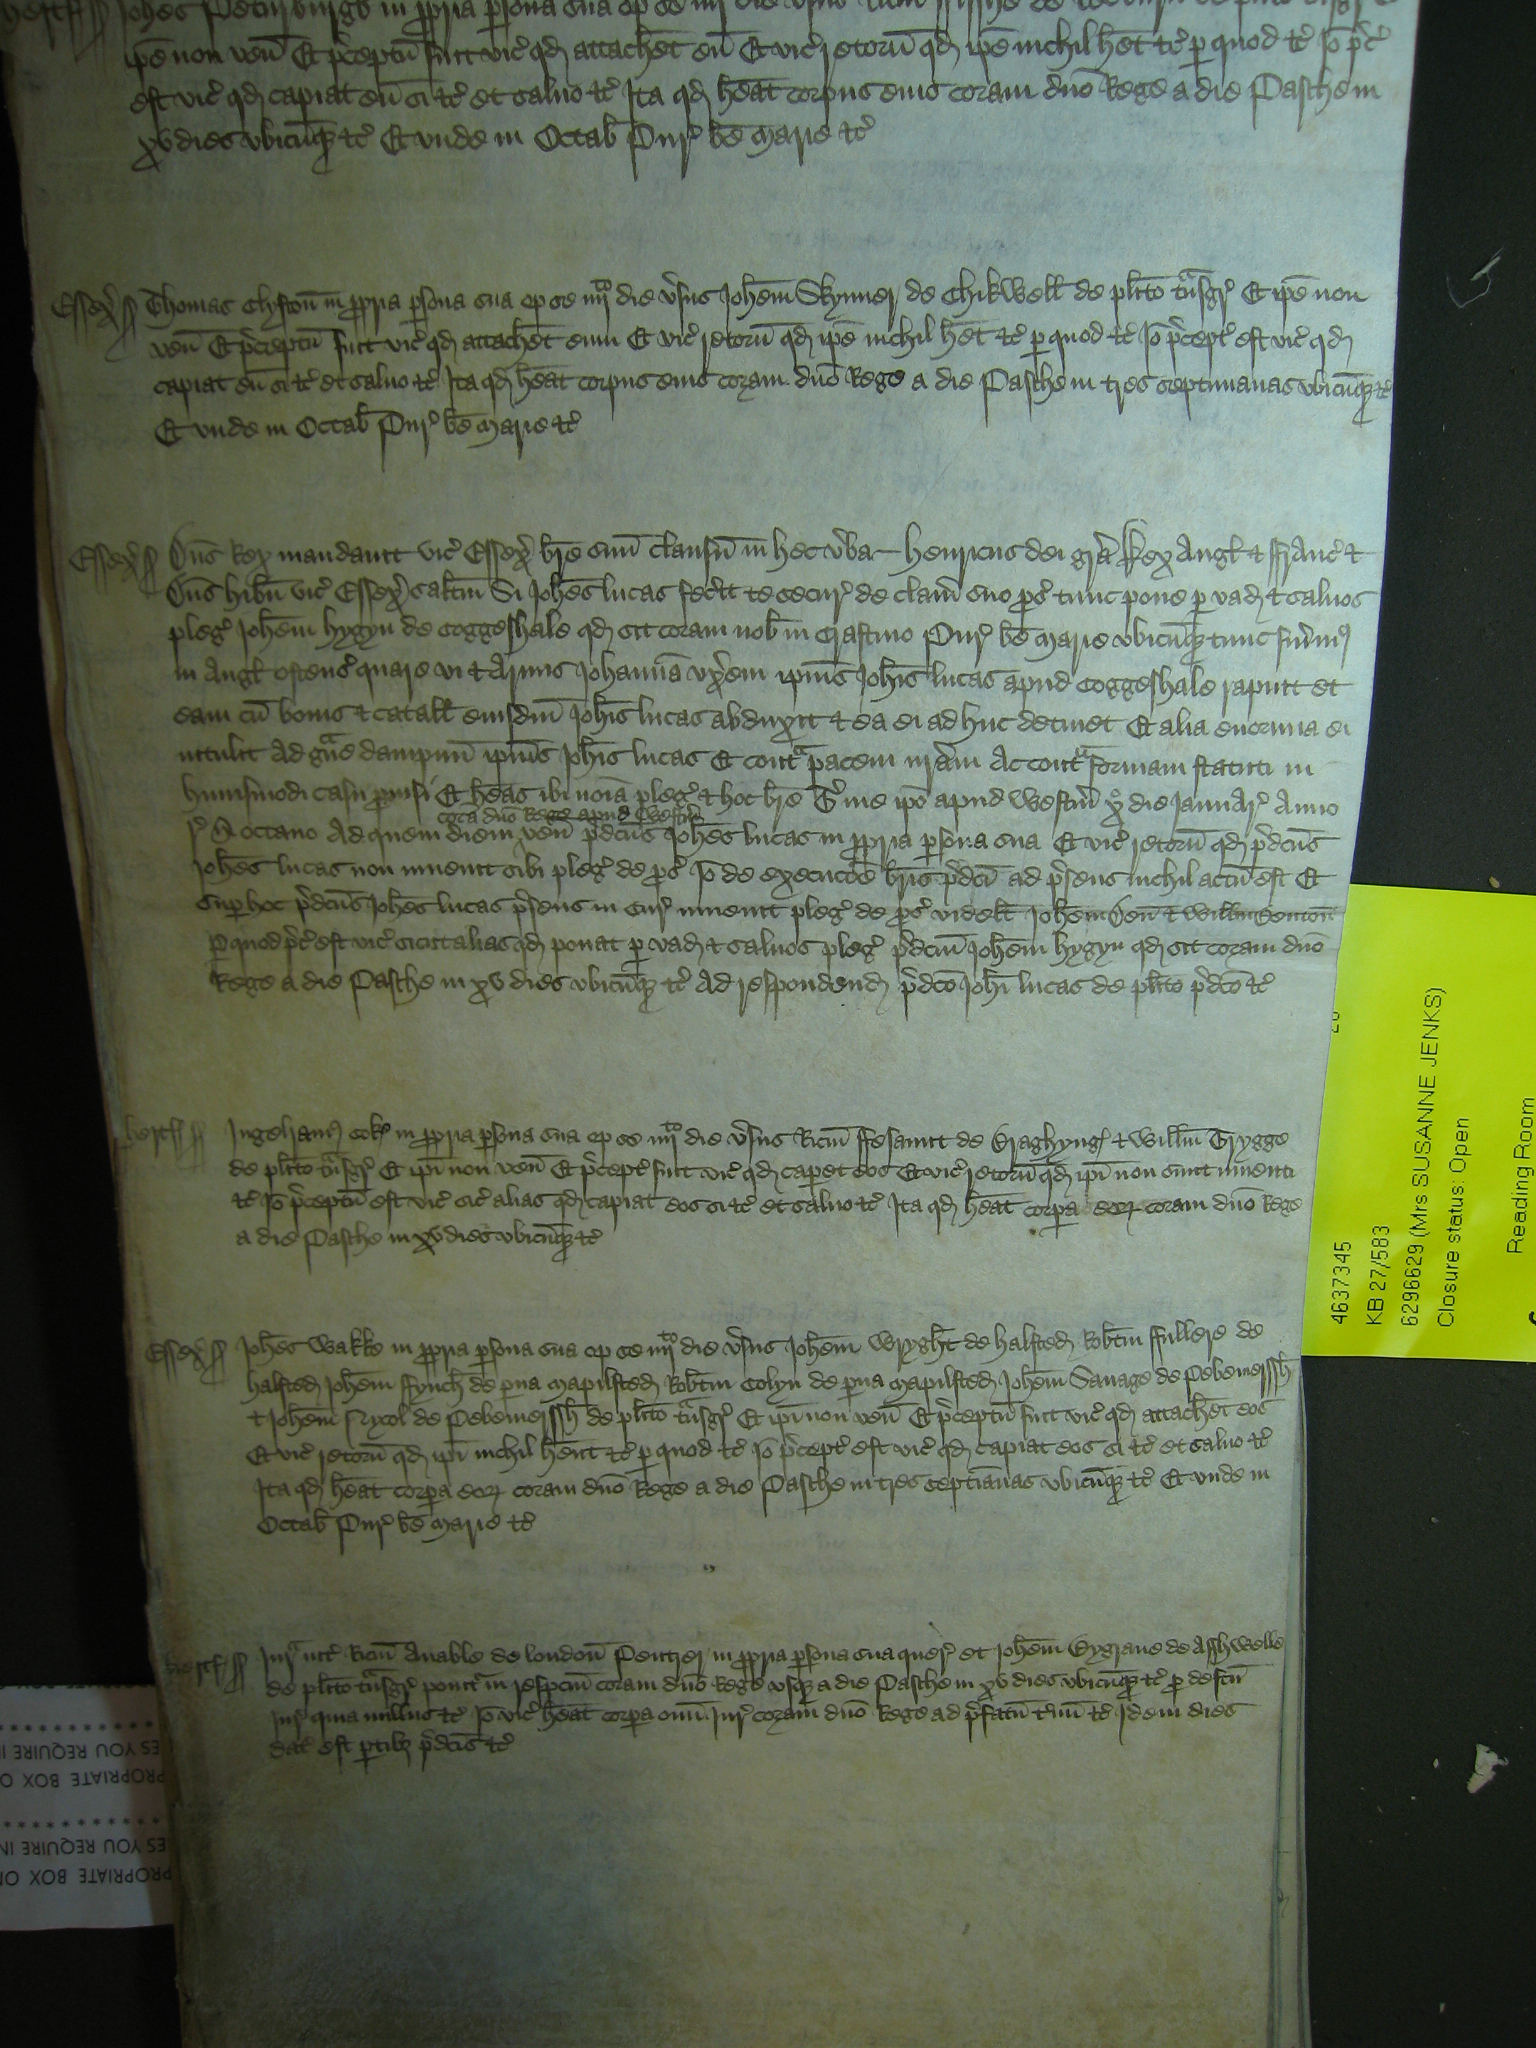 Hertf Joh̃es Peturburgh in ꝓpria ꝑsona sua op se iiij die ṽsus
ip̃e non veñ Et p̃ceptũ fuit vic̃ qđ attach̃et eũ Et vic̃ retorñ qđ ip̃e nichil h̃et ⁊c̃ ꝑ quod ⁊c̃ Iõ p̃c̃
est vic̃ qđ capiat eũ si ⁊c̃ et saluo ⁊c̃ Ita qđ h̃eat corpus eius coram dño Rege a die Pasche in
xv dies vbicũqꝫ ⁊c̃ Et vnde in Octab̃ Pur̃ b̃e Marie ⁊c̃
Essex̃ Thomas Clyftoñ in ꝓpria ꝑsona sua op se iiijto die ṽsus Joh̃em Skynner de Chikwell̃ de pl̃ito tr̃nsgr̃ Et ip̃e non
veñ Et p̃ceptũ fuit vic̃ qđ attach̃et eum Et vic̃ retorñ qđ ip̃e nichil h̃et ⁊c̃ ꝑ quod ⁊c̃ Iõ p̃cept̃ est vic̃ qđ
capiat eũ si ⁊c̃ et saluo ⁊c̃ Ita qđ h̃eat corpus eius coram dño Rege a die Pasche in tres septimanas vbicũqꝫ ⁊c̃
Et vnde in Octab̃ Pur̃ b̃e Marie ⁊c̃
Essex̃ Dñs Rex mandauit vic̃ Essex̃ br̃e suũ clausũ in hec ṽba Henricus dei gr̃a Rex Angl̃ ⁊ ffranc̃ ⁊
Dñs Hib̃n vic̃ Essex̃ salt̃m Si Joh̃es Lucas fec̃it te secur̃ de clam̃ suo ꝓs̃ tunc pone ꝑ vad̃ ⁊ saluos
pleg̃ Joh̃em Hygyn de Coggeshale qđ sit coram nob̃ in Crastino Pur̃ b̃e Marie vbicũqꝫ tunc fuẽimꝰ
in Angl̃ ostens̃ quare vi ⁊ armis Johannã vx̃em ip̃ius Joh̃is Lucas apud Coggeshale rapuit et
eam cũ bonis ⁊ catall̃ eiusdm̃ Joh̃is Lucas abduxit ⁊ ea ei adhuc detinet Et alia enormia ei
intulit Ad gr̃ue dampnũ ip̃ius Joh̃is Lucas Et contra pacem nr̃am Ac contra formam statuti in
huiusmodi casu ꝓuisi Et h̃eas ibi noĩa pleg̃ ⁊ hoc br̃e T̃ me ip̃o apud Westm̃ xo die Januar̃ Anno
cora dño Rege apud Westm̃
r̃ ñ octauo Ad quem diem veñ p̃dcũs Joh̃es Lucas in ꝓpria ꝑsona sua Et vic̃ retorñ qđ p̃dcũs
Joh̃es Lucas non inuenit sibi pleg̃ de ꝓs̃ Iõ de execucõe br̃is p̃dcĩ ad p̃sens nichil actũ est Et
suꝑ hoc p̃dcũs Joh̃es Lucas p̃sens in Cur̃ inuenit pleg̃ de ꝓs̃ videlt̃ Joh̃em Denñ ⁊ Willm̃ Dentoñ
ꝑ quod p̃c̃ est vic̃ sicut alias qđ ponat ꝑ vad̃ ⁊ saluos pleg̃ p̃dcũm Joh̃em Hygyn qđ sit coram dño
Rege a die Pasche in xv dies vbicũqꝫ ⁊c̃ Ad respondend̃ p̃dcõ Joh̃i Lucas de pl̃ito p̃dcõ ⁊c̃
Hertf Ingelramꝰ Cok̃ in ꝓpria ꝑsona sua op se iiijto die ṽsus Ricm̃ ffesaunt de Braghyng̃ ⁊ Willm̃ Trygge
de pl̃ito tr̃nsgr̃ Et ip̃i non veñ Et p̃cept̃ fuit vic̃ qđ caꝑet eos Et vic̃ retorñ qđ ip̃i non sunt inuenti
⁊c̃ Iõ p̃ceptũ est vic̃ sic̃ alias qđ capiat eos si ⁊c̃ et saluo ⁊c̃ Ita qđ h̃eat corꝑa eoꝝ coram dño Rege
a die Pasche in xv dies vbicũqꝫ ⁊c̃
Essex̃ Joh̃es Wakke in ꝓpria ꝑsona sua op se iiijto die ṽsus Joh̃em Wryght̃ de Halsted̃ Rob̃tm ffullere de
Halsted̃ Joh̃em ffynch̃ de ꝑua Mapilsted̃ Rob̃tm Colyn de ꝑua Mapilsted̃ Joh̃em Sauage de Pebemerssh̃
⁊ Joh̃em de Pebemerssh̃ de pl̃ito tr̃nsgr̃ Et ip̃i non veñ Et p̃ceptũ fuit vic̃ qđ attach̃et eos
Et vic̃ retorñ qđ ip̃i nichil h̃ent ⁊c̃ ꝑ quod ⁊c̃ Iõ p̃cept̃ est vic̃ qđ capiat eos si ⁊c̃ et saluo ⁊c̃
Ita qđ h̃eat corꝑa eoꝝ coram dño Rege a die Pasche in tres septiãnas vbicũqꝫ ⁊c̃ Et vnde in
Octab̃ Pur̃ b̃e Marie ⁊c̃
Hertf Jur̃ int̃ Ricm̃ Anable de Londoñ Peutrer in ꝓpria ꝑsona sua quer̃ et Joh̃em Bygraue de Asshwelle
de pl̃ito tr̃nsgr̃ ponit̃ in respcũm coram dño Rege vsqꝫ a die Pasche in xv dies vbicũqꝫ ⁊c̃ ꝑ defcũ
Jur̃ quia nullus ⁊c̃ Iõ vic̃ h̃eat corꝑa om̃ Jur̃ coram dño Rege ad p̃fatũ t̃mũ ⁊c̃ Idem dies
dat̃ est ꝑtibꝫ p̃dcĩs ⁊c̃
4637345
KB 27/583
6296629 (Mrs SUSANNE JENKS)
Closure status: Open
Reading Room
ES YOU REQUIRE IN
PROPRIATE BOX O
ES YOU REQUIRE IN
PROPRIATE BOX O